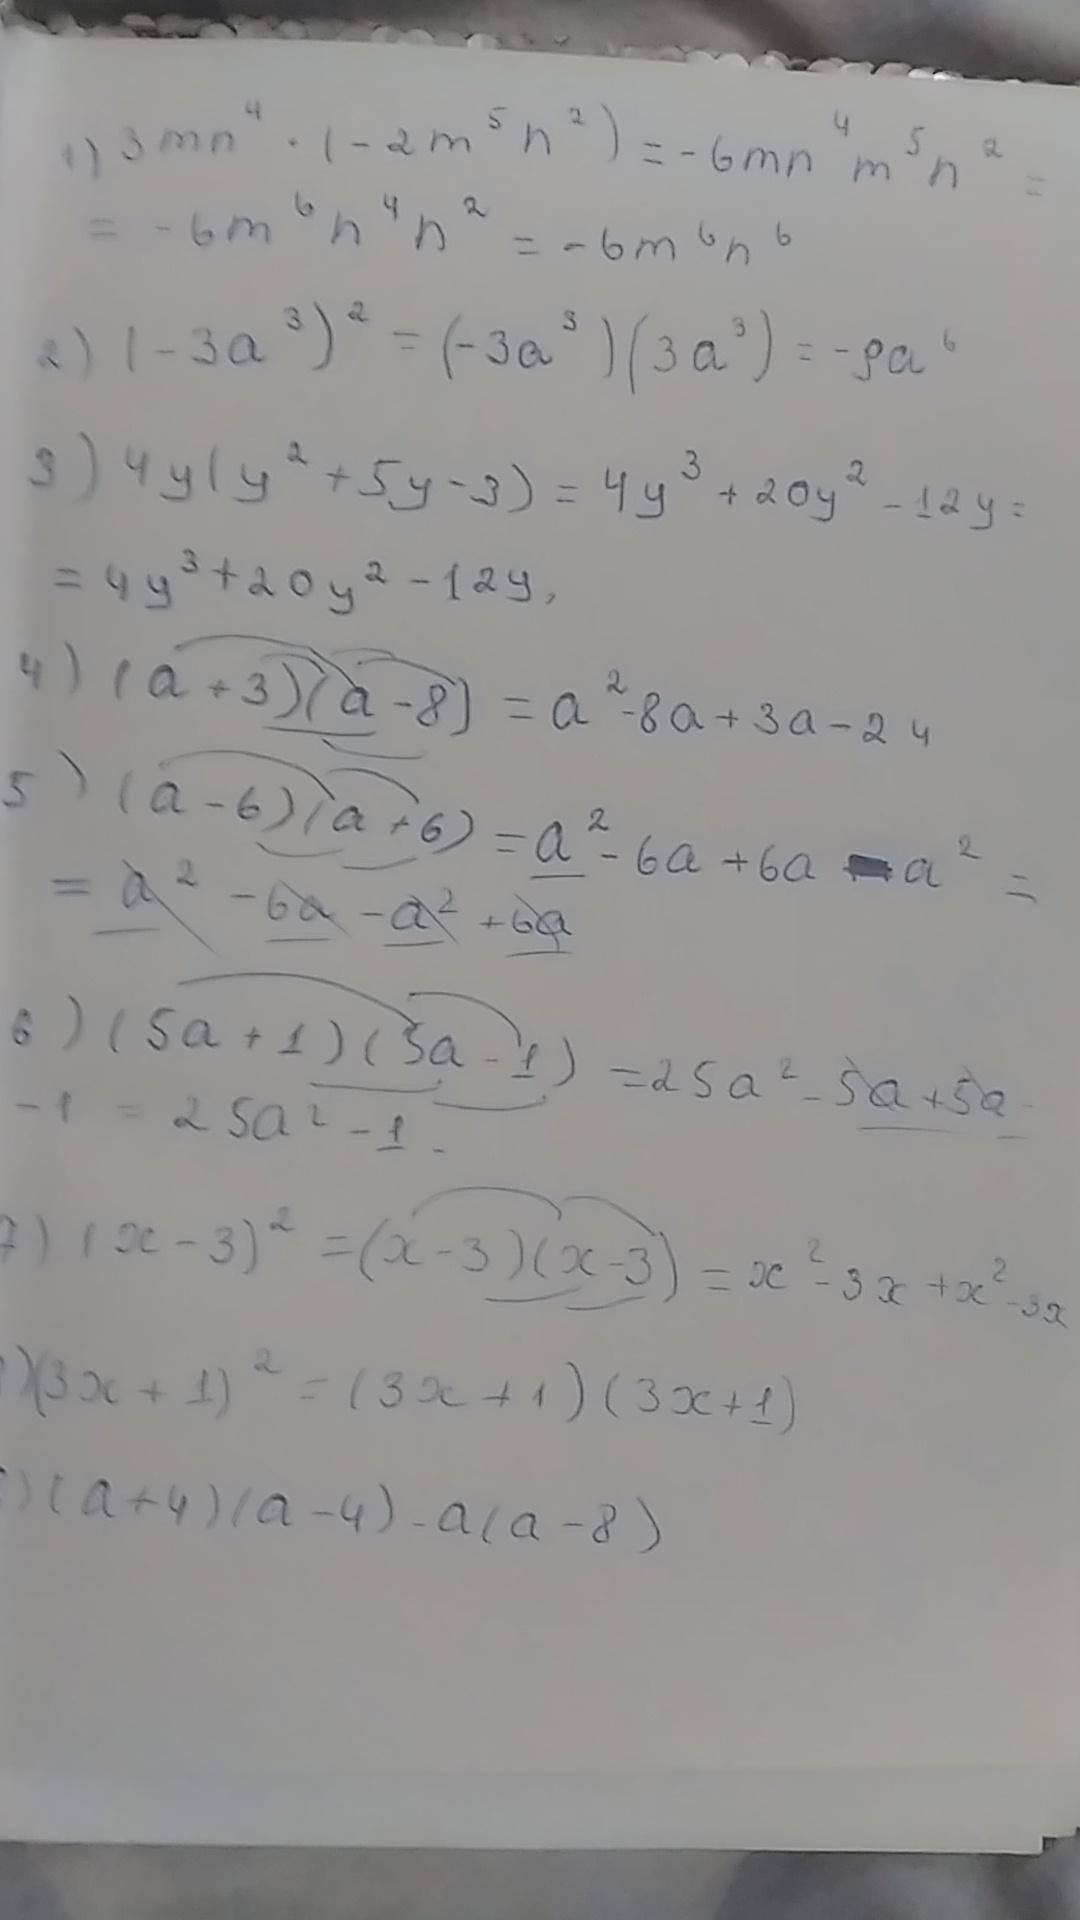 1) 3mn⁴ · (-2m⁵n²) = -6mn⁴m⁵n² =
= -6m⁶n⁴n² = -6m⁶n⁶
2) (-3a³)² = (-3a³)(3a³) = -9a⁶
3) 4y(y² + 5y - 3) = 4y³ + 20y² - 12y =
= 4y³ + 20y² - 12y,
4) (a + 3)(a - 8) = a² - 8a + 3a - 24
5) (a - 6)(a + 6) = a² - 6a + 6a - a² =
= a² - 6a - a² + 6a
6) (5a + 1)(5a - 1) = 25a² - 5a + 5a -
-1 = 25a² - 1.
7) (x - 3)² = (x - 3)(x - 3) = x² - 3x + x² - 3x
)(3x + 1)² = (3x + 1)(3x + 1)
) (a + 4)(a - 4) - a(a - 8)